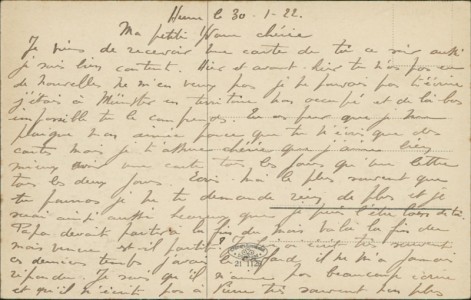 Hierne le 30-1-22.
Ma petite femme chérie
Je viens de recevoir une carte de toi ce soir aussi
je suis bien content. Hier et avant-hier tu n'as pas eu
de nouvelles ne m'en veux pas je ne pouvais pas t'écrire
j'étais à Münster en territoire non occupé et de là-bas
impossible tu le comprends. Tu as peur que je ne
plaigne mon aimée parce que tu n'écris que des
cartes mais je t'assure chérie que j'aime bien
mieux avoir une carte tous les jours qu'une lettre
tous les deux jours. Ecris moi le plus souvent que
tu pourras je ne te demande rien de plus et je
serai ainsi aussi heureux que je puis l'être loin de toi
Papa devait partir à la fin du mois voilà la fin du
mois venue est-il parti? écrit très souvent
ces derniers temps j'avais et il ne m'a jamais
répondu. Je sais qu'il n'aime pas beaucoup écrire
et qu'il n'écrit pas à Pierre très souvent non plus